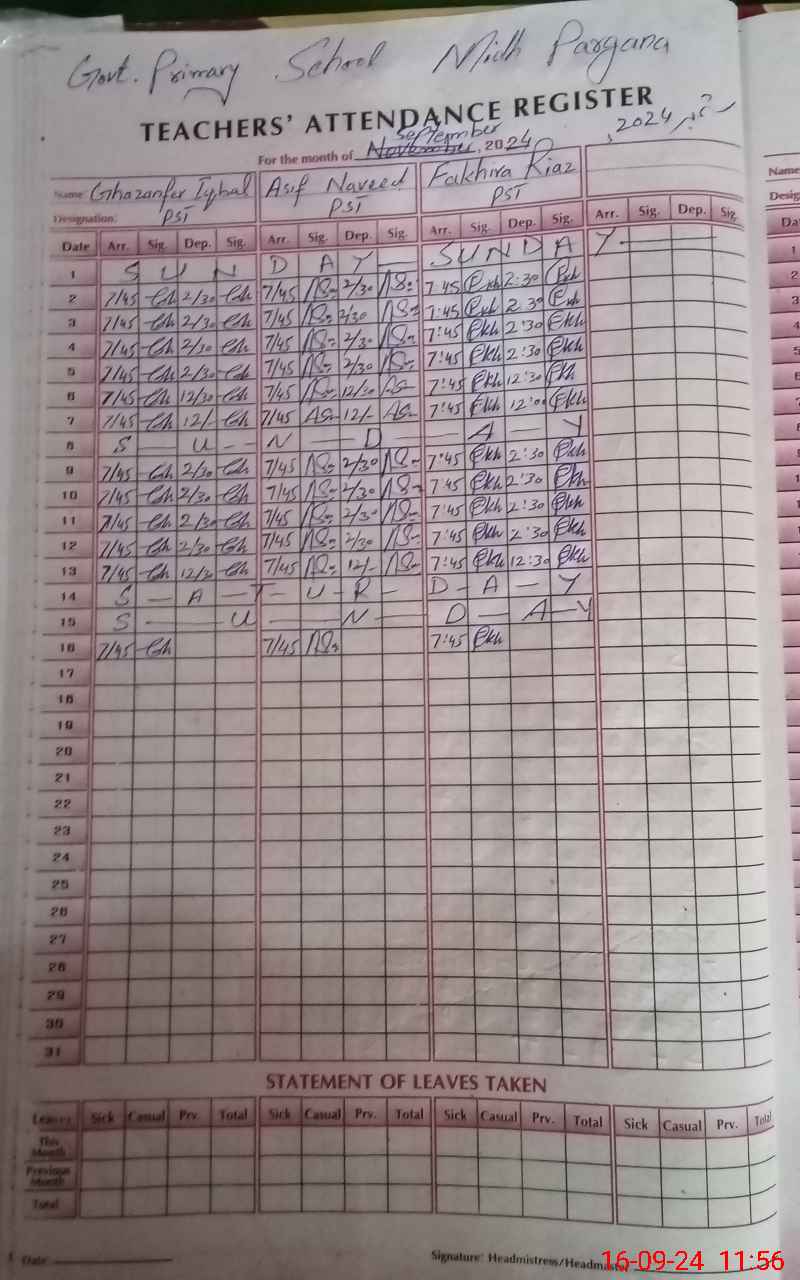 Govt. Primary School Midh Pargana
TEACHERS' ATTENDANCE REGISTER
ستمبر 2024ء
September
For the month of November, 2024
Name: Ghazanfer Iqbal Asif Naveed Fakhira Riaz
Designation: PST PST PST
Date Arr. Sig. Dep. Sig. Arr. Sig. Dep. Sig. Arr. Sig. Dep. Sig. Arr. Sig. Dep. Sig.
1 S U N D A Y — S U N D A Y
2 7/45 Gh 2/30 Gh 7/45 AS 2/30 AS 7:45 Fkh 2:30 Fkh
3 7/45 Gh 2/30 Gh 7/45 AS 2/30 AS 7:45 Fkh 2:30 Fkh
4 7/45 Gh 2/30 Gh 7/45 AS 2/30 AS 7:45 Fkh 2:30 Fkh
5 7/45 Gh 2/30 Gh 7/45 AS 2/30 AS 7:45 Fkh 2:30 Fkh
6 7/45 Gh 12/30 Gh 7/45 AS 12/30 AS 7:45 Fkh 12:30 Fkh
7 7/45 Gh 12/- Gh 7/45 AS 12/- AS 7:45 Fkh 12:00 Fkh
8 S — U — N — D — A — Y
9 7/45 Gh 2/30 Gh 7/45 AS 2/30 AS 7:45 Fkh 2:30 Fkh
10 7/45 Gh 2/30 Gh 7/45 AS 2/30 AS 7:45 Fkh 2:30 Fkh
11 7/45 Gh 2/30 Gh 7/45 AS 2/30 AS 7:45 Fkh 2:30 Fkh
12 7/45 Gh 2/30 Gh 7/45 AS 2/30 AS 7:45 Fkh 2:30 Fkh
13 7/45 Gh 12/30 Gh 7/45 AS 12/- AS 7:45 Fkh 12:30 Fkh
14 S — A — T — U — R — D — A — Y
15 S — U — N — D — A — Y
16 7/45 Gh 7/45 AS 7:45 Fkh
17
18
19
20
21
22
23
24
25
26
27
28
29
30
31
STATEMENT OF LEAVES TAKEN
Leaves Sick Casual Prv. Total Sick Casual Prv. Total Sick Casual Prv. Total Sick Casual Prv. Total
This Month
Previous Month
Total
Date: Signature: Headmistress/Headmaster
16-09-24 11:56